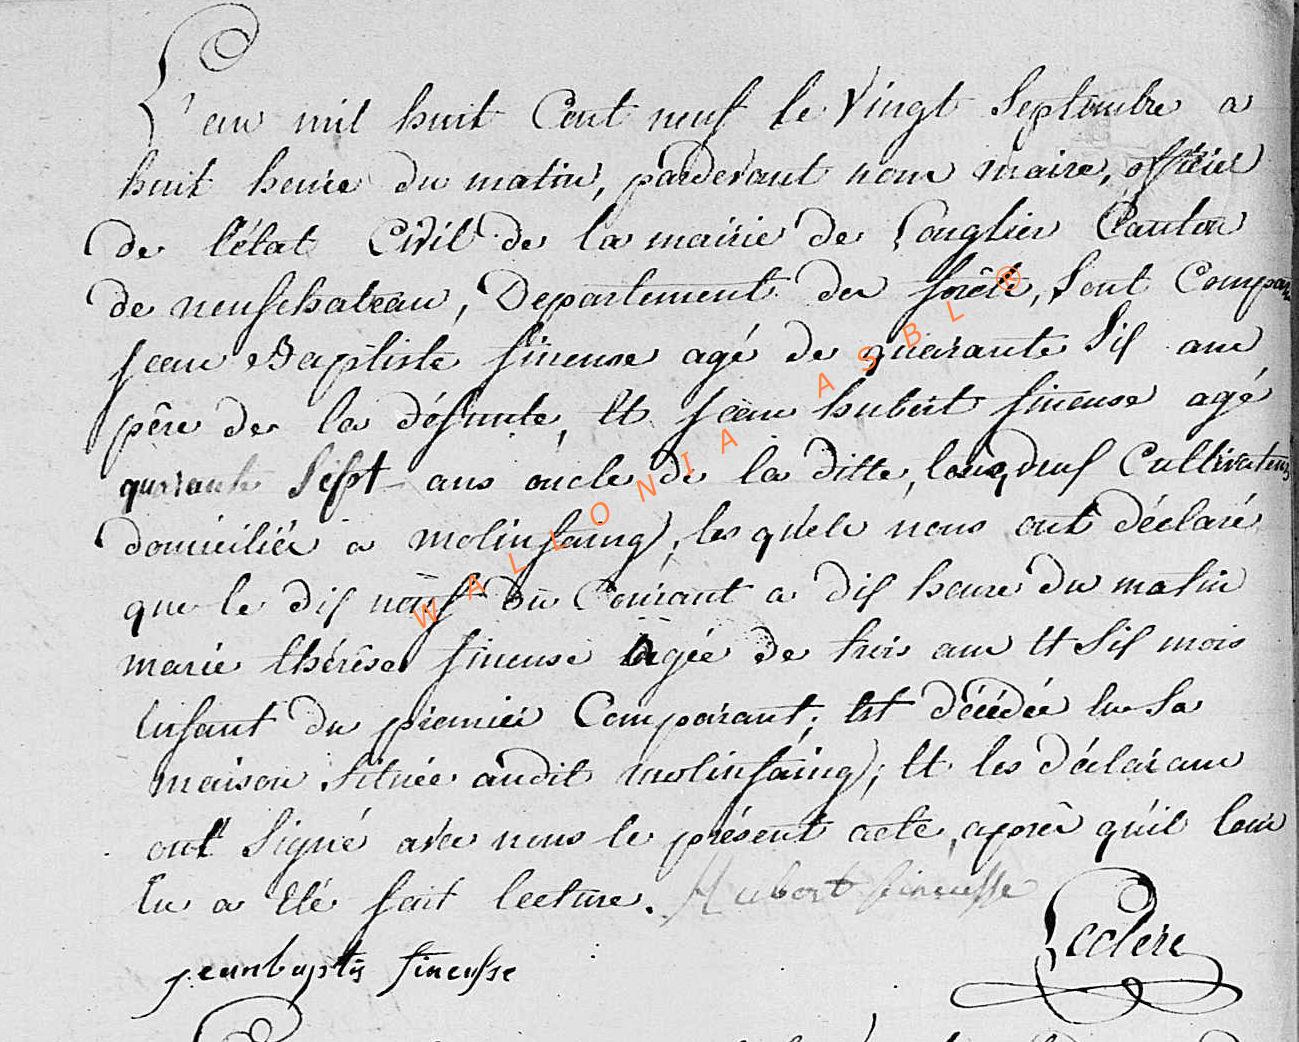 L'an mil huit Cent neuf le Vingt Septembre a
huit heure du matin, pardevant nous maire, officier
de l'état Civil de la mairie de Longlier Canton
de neufchateau, Departement des forêts, Sont Compar
jean Baptiste fineuse agé de quarante Six ans
père de la défunte, Et jean hubert fineuse agé
quarante Sept ans oncle de la ditte, tous deux Cultivateurs
domiciliés a molinfaing, les quels nous ont déclaré
que le dix neuf du Courant a dix heure du matin
marie thérèse fineuse agée de trois ans Et Six mois
Enfant du premier Comparant, Est décédée En Sa
maison Située audit molinfaing; Et les déclarans
ont Signé avec nous le présent acte, après qu'il leur
En a Eté fait lecture. Hubert fineusse
Leclere
jeanbaptis fineusse
WALLONIA ASBL ®